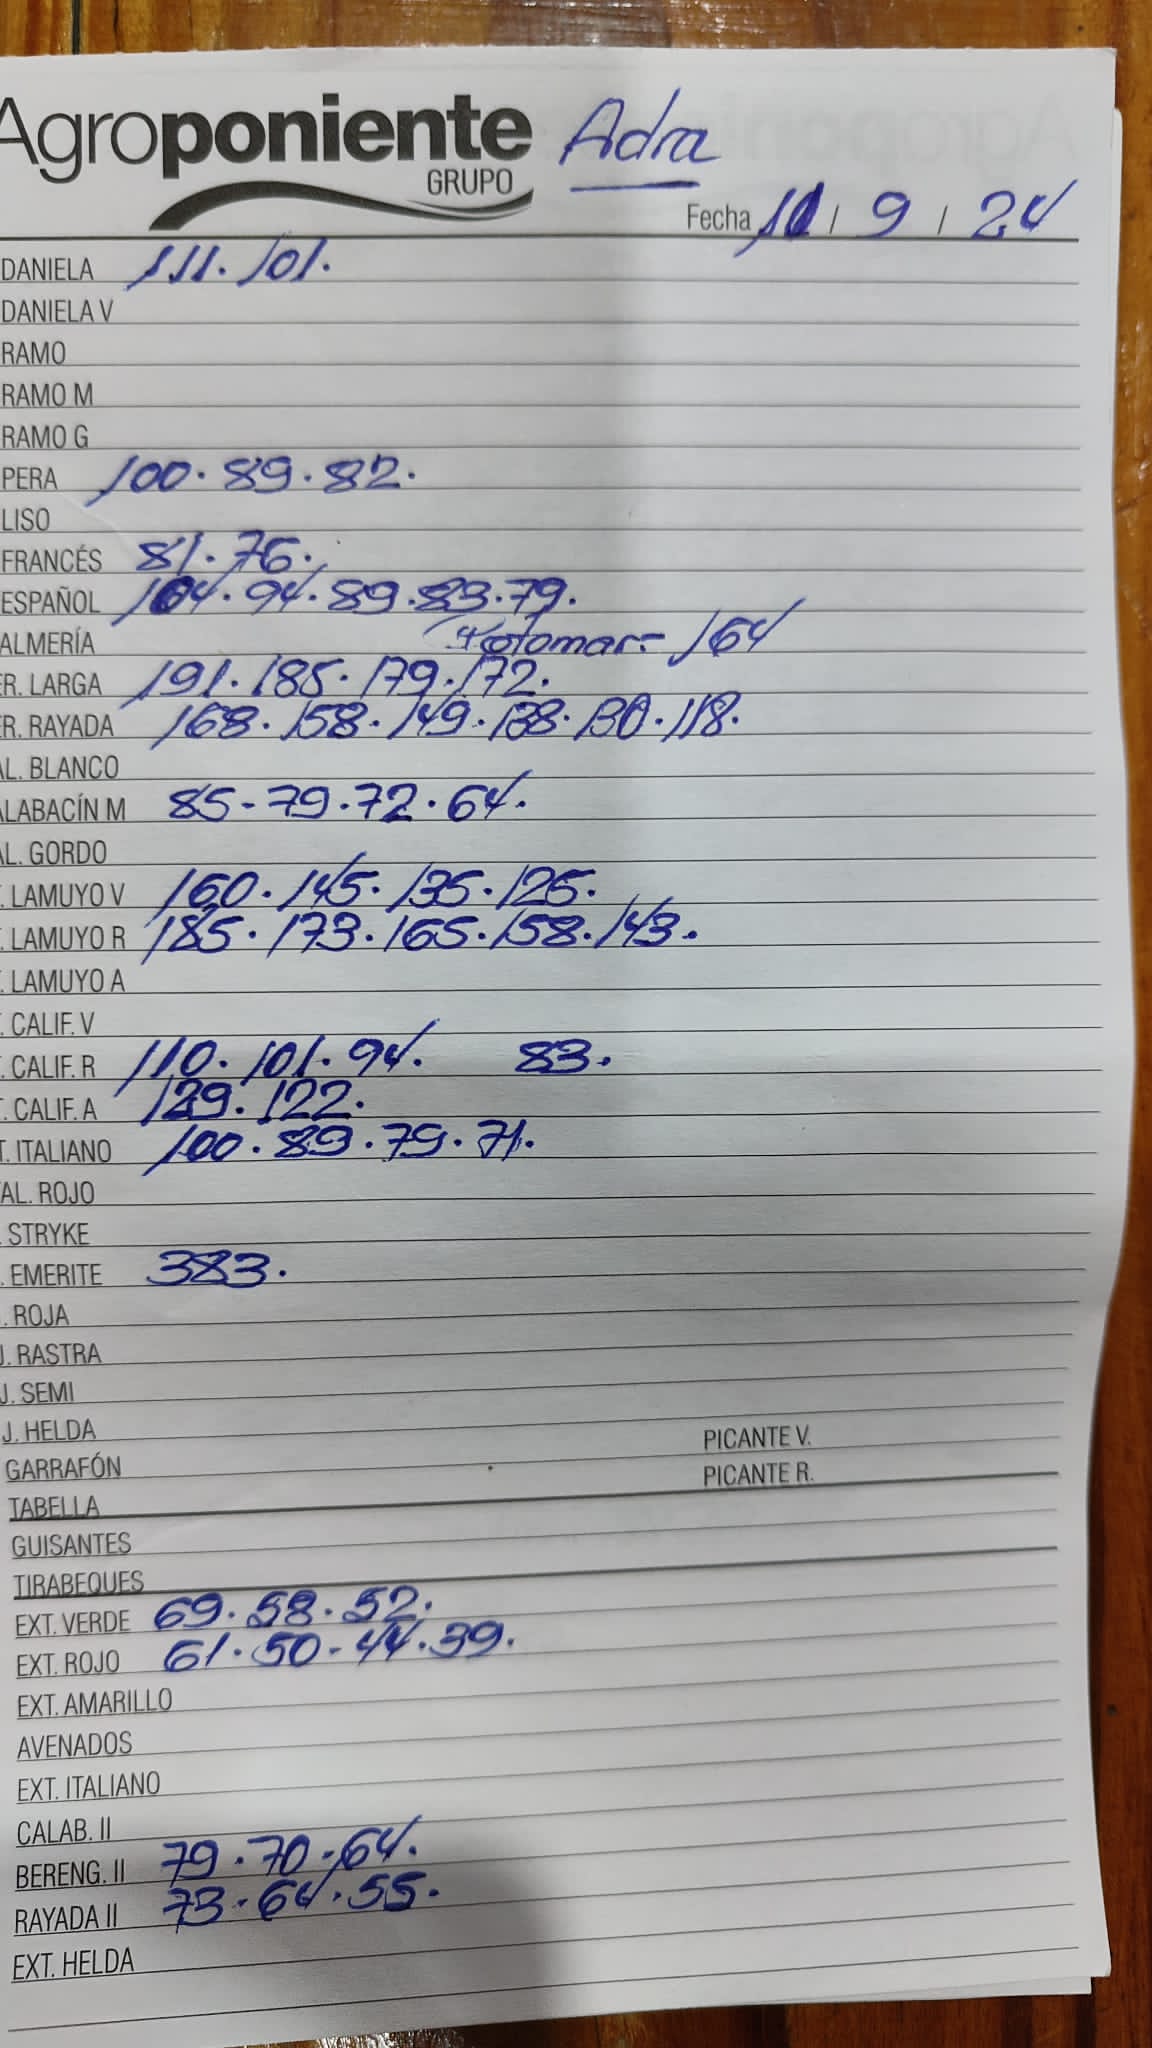 Agroponiente Adra
GRUPO
Fecha 11 / 9 / 24
DANIELA 111. 101.
DANIELA V
RAMO
RAMO M
RAMO G
PERA 100. 89. 82.
LISO
FRANCÉS 81. 76.
ESPAÑOL 104. 94. 89. 83. 79.
ALMERÍA 164
ER. LARGA 191. 185. 179. 172.
ER. RAYADA 168. 158. 149. 138. 130. 118.
AL. BLANCO
ALABACÍN M 85-79.72.64.
AL. GORDO
. LAMUYO V 160. 145. 135. 125.
. LAMUYO R 185. 173. 165. 158. 143.
. LAMUYO A
. CALIF. V
. CALIF. R 110. 101. 94. 83.
. CALIF. A 129. 122.
T. ITALIANO 100. 89. 79. 71.
AL. ROJO
. STRYKE
. EMERITE 383.
. ROJA
J. RASTRA
J. SEMI
J. HELDA
PICANTE V.
GARRAFÓN
PICANTE R.
TABELLA
GUISANTES
TIRABEQUES
EXT. VERDE 69. 58. 52.
EXT. ROJO 61. 50-44. 39.
EXT. AMARILLO
AVENADOS
EXT. ITALIANO
CALAB. II
BERENG. II 79. 70. 64.
RAYADA II 73. 64. 55.
EXT. HELDA